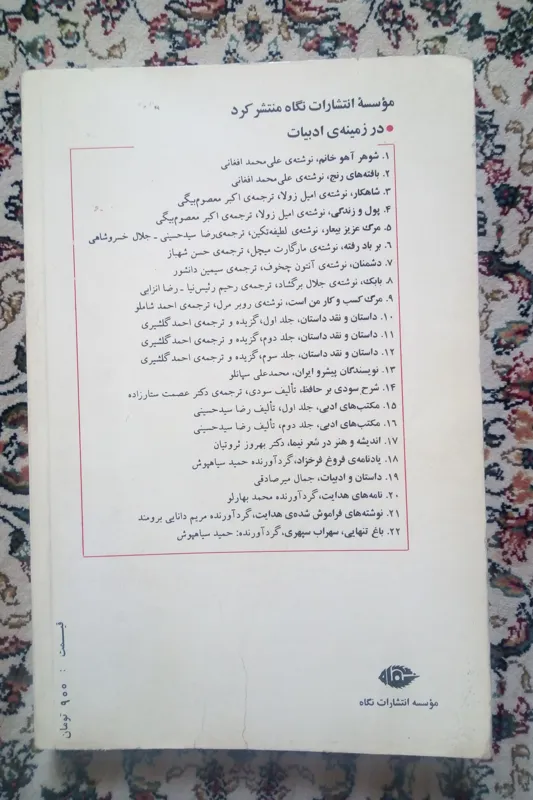 مؤسسهٔ انتشارات نگاه منتشر کرد
• در زمینه‌ی ادبیات
۱. شوهر آهو خانم، نوشته‌ی علی‌محمد افغانی
۲. بافته‌های رنج، نوشته‌ی علی‌محمد افغانی
۳. شاهکار، نوشته‌ی امیل زولا، ترجمه‌ی اکبر معصوم‌بیگی
۴. پول و زندگی، نوشته‌ی امیل زولا، ترجمه‌ی اکبر معصوم‌بیگی
۵. مرگ عزیز بیعار، نوشته‌ی لطیفه‌تکین، ترجمه‌ی رضا سیدحسینی - جلال خسروشاهی
۶. بر باد رفته، نوشته‌ی مارگارت میچل، ترجمه‌ی حسن شهباز
۷. دشمنان، نوشته‌ی آنتون چخوف، ترجمه‌ی سیمین دانشور
۸. بابک، نوشته‌ی جلال برگشاد، ترجمه‌ی رحیم رئیس‌نیا - رضا انزابی
۹. مرگ کسب و کار من است، نوشته‌ی روبر مرل، ترجمه‌ی احمد شاملو
۱۰. داستان و نقد داستان، جلد اول، گزیده و ترجمه‌ی احمد گلشیری
۱۱. داستان و نقد داستان، جلد دوم، گزیده و ترجمه‌ی احمد گلشیری
۱۲. داستان و نقد داستان، جلد سوم، گزیده و ترجمه‌ی احمد گلشیری
۱۳. نویسندگان پیشرو ایران، محمدعلی سپانلو
۱۴. شرح سودی بر حافظ، تألیف سودی، ترجمه‌ی دکتر عصمت ستارزاده
۱۵. مکتب‌های ادبی، جلد اول، تألیف رضا سیدحسینی
۱۶. مکتب‌های ادبی، جلد دوم، تألیف رضا سیدحسینی
۱۷. اندیشه و هنر در شعر نیما، دکتر بهروز ثروتیان
۱۸. یادنامه‌ی فروغ فرخزاد، گردآورنده حمید سیاهپوش
۱۹. داستان و ادبیات، جمال میرصادقی
۲۰. نامه‌های هدایت، گردآورنده محمد بهارلو
۲۱. نوشته‌های فراموش شده‌ی هدایت، گردآورنده مریم دانایی برومند
۲۲. باغ تنهایی، سهراب سپهری، گردآورنده: حمید سیاهپوش
مؤسسه انتشارات نگاه
قیمت : ۹۰۰ تومان